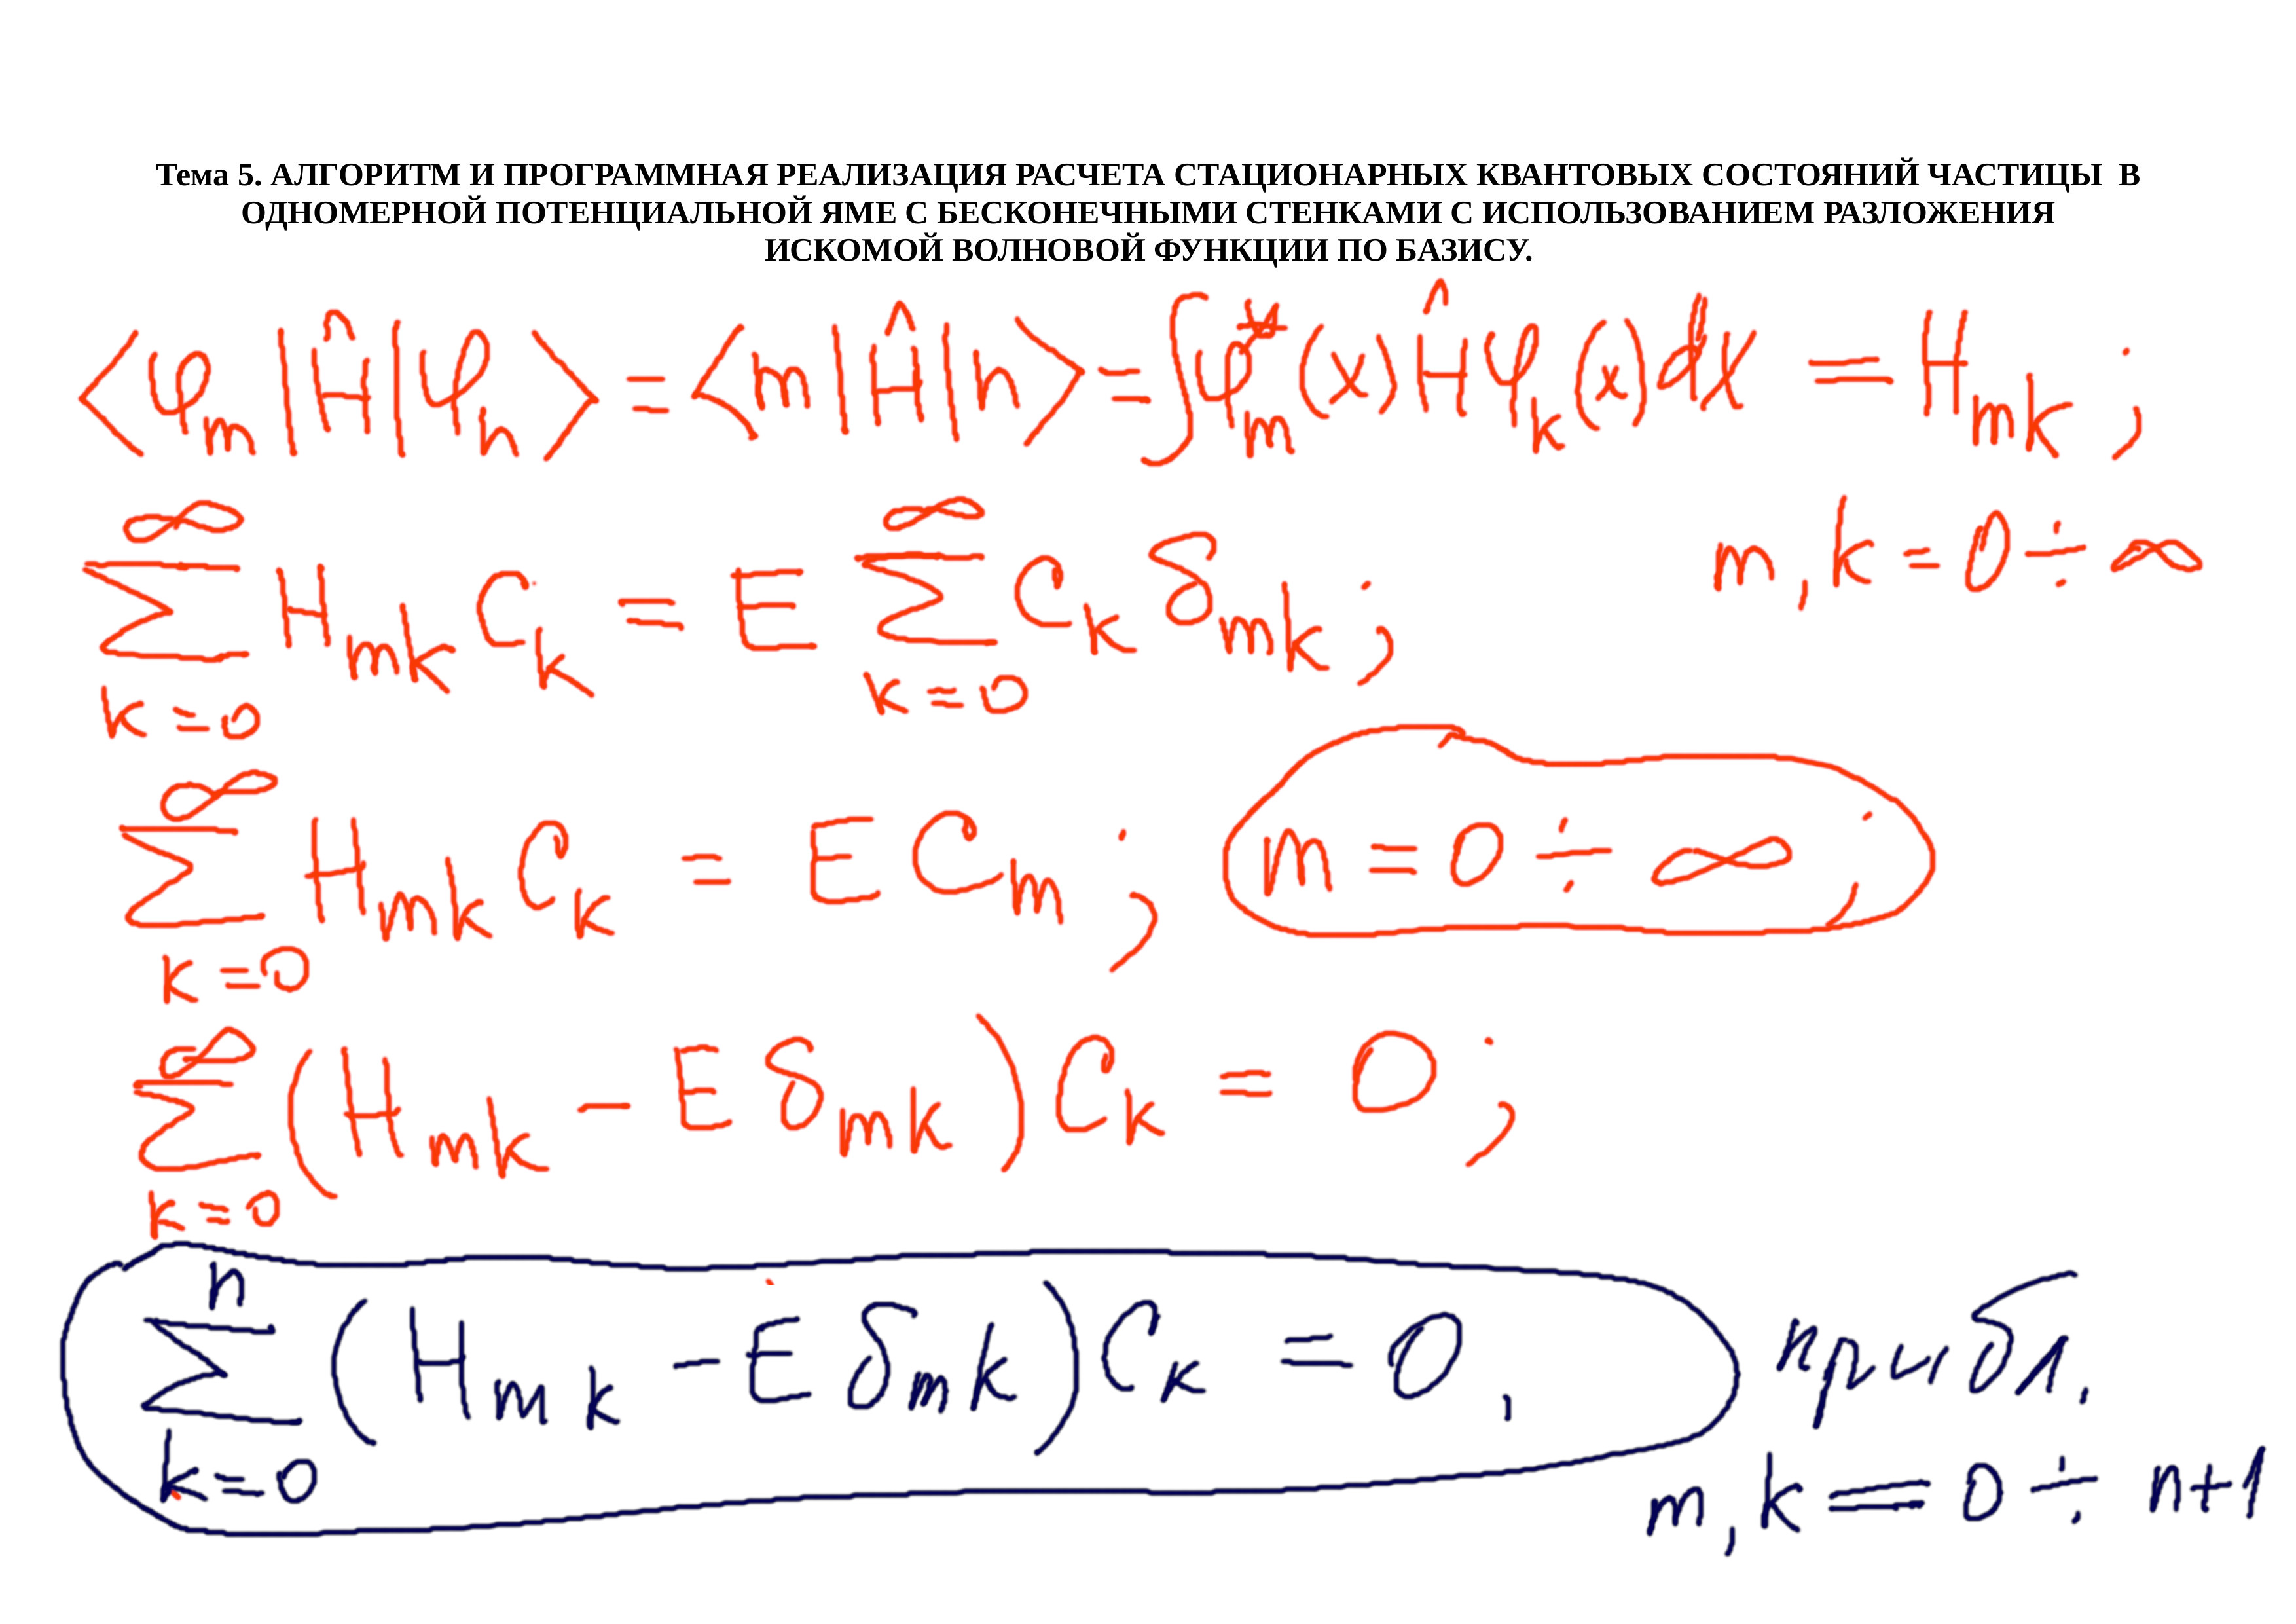 Тема 5. АЛГОРИТМ И ПРОГРАММНАЯ РЕАЛИЗАЦИЯ РАСЧЕТА СТАЦИОНАРНЫХ КВАНТОВЫХ СОСТОЯНИЙ ЧАСТИЦЫ В
ОДНОМЕРНОЙ ПОТЕНЦИАЛЬНОЙ ЯМЕ С БЕСКОНЕЧНЫМИ СТЕНКАМИ С ИСПОЛЬЗОВАНИЕМ РАЗЛОЖЕНИЯ
ИСКОМОЙ ВОЛНОВОЙ ФУНКЦИИ ПО БАЗИСУ.
⟨φ_m|Ĥ|φ_n⟩ = ⟨m|Ĥ|n⟩ = ∫φ_m^*(x)Ĥφ_k(x)dx = H_mk ;
∑_{k=0}^{∞} H_mk C_k = E ∑_{k=0}^{∞} C_k δ_mk ; m,k = 0 ÷ ∞
∑_{k=0}^{∞} H_mk C_k = E C_m ; m = 0 ÷ ∞ ;
∑_{k=0}^{∞} (H_mk − E δ_mk) C_k = 0 ;
∑_{k=0}^{n} (H_mk − E δ_mk) C_k = 0 , прибл.
m,k = 0 ÷ n+1